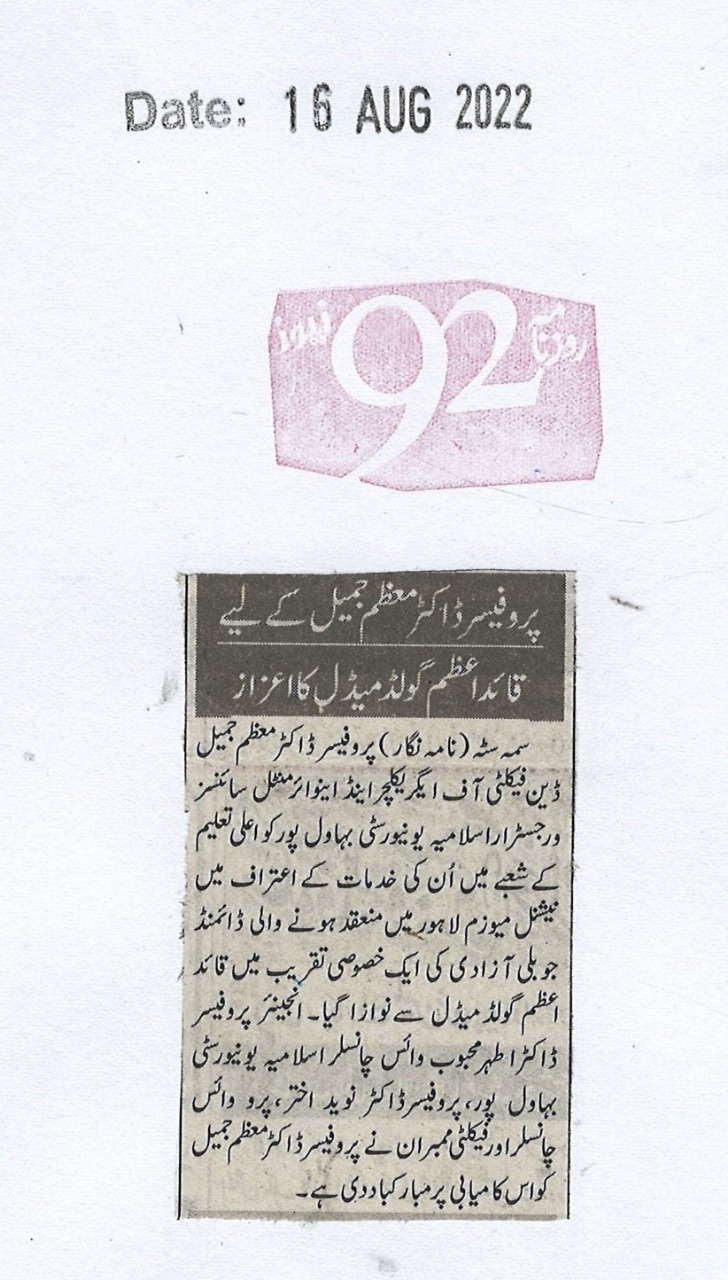 Date: 16 AUG 2022
روزنامہ 92 نیوز
پروفیسر ڈاکٹر معظم جمیل کے لیے
قائداعظم گولڈ میڈل کا اعزاز
سمہ سٹہ (نامہ نگار) پروفیسر ڈاکٹر معظم جمیل
ڈین فیکلٹی آف ایگریکلچر اینڈ اینوائرمنٹل سائنسز
ورجسٹرار اسلامیہ یونیورسٹی بہاول پور کو اعلی تعلیم
کے شعبے میں اُن کی خدمات کے اعتراف میں
نیشنل میوزم لاہور میں منعقد ہونے والی ڈائمنڈ
جوبلی آزادی کی ایک خصوصی تقریب میں قائد
اعظم گولڈ میڈل سے نوازا گیا۔ انجینئر پروفیسر
ڈاکٹر اطہر محبوب وائس چانسلر اسلامیہ یونیورسٹی
بہاول پور، پروفیسر ڈاکٹر نوید اختر، پرو وائس
چانسلر اور فیکلٹی ممبران نے پروفیسر ڈاکٹر معظم جمیل
کو اس کامیابی پر مبارکباد دی ہے۔